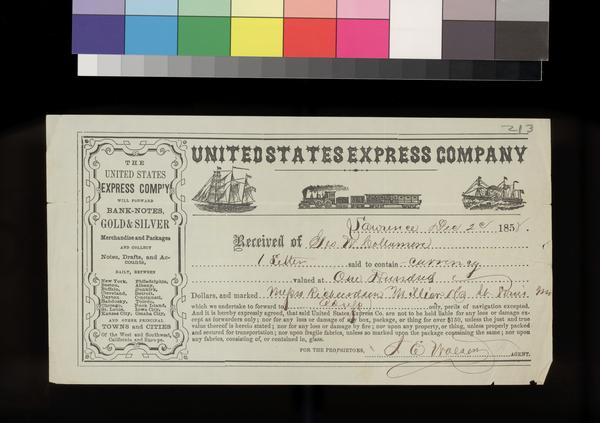 213
THE
UNITED STATES
EXPRESS COMP'Y
WILL FORWARD
BANK-NOTES,
GOLD & SILVER
Merchandise and Packages
AND COLLECT
Notes, Drafts, and Ac-
counts,
DAILY, BETWEEN
New York, Philadelphia,
Boston, Albany,
Buffalo, Dunkirk,
Cleveland, Detroit,
Dayton Cincinnati,
Sandusky, Toledo,
Chicago, Rock Island,
St. Louis, Iowa City,
Kansas City, Omaha City,
AND OTHER PRINCIPAL
TOWNS and CITIES
Of the West and Southwest,
California and Europe.
UNITED STATES EXPRESS COMPANY
Lawrence Dec 2d 1858
Received of Geo W Collamore
1 Letter said to contain currency
valued at One Hundred
Dollars, and marked Messrs Richardson St. Louis Mo
which we undertake to forward to only, perils of navigation excepted.
And it is hereby expressly agreed, that said United States Express Co. are not to be held liable for any loss or damage ex-
cept as forwarders only; nor for any loss or damage of any box, package, or thing for over $150, unless the just and true
value thereof is herein stated; nor for any loss or damage by fire; nor upon any property, or thing, unless properly packed
and secured for transportation; nor upon fragile fabrics, unless so marked upon the package containing the same; nor upon
any fabrics, consisting of, or contained in, glass.
FOR THE PROPRIETORS, AGENT.